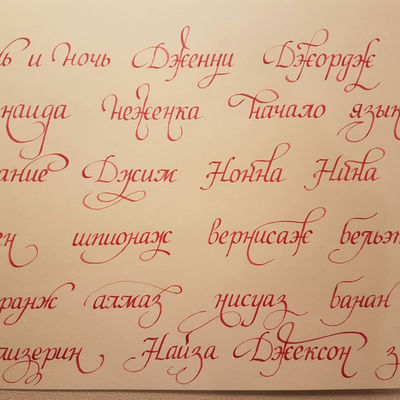 и Ночь Дженни Джордж
неженка начало язык
Джим Нонна Нина
шпионаж вернисаж бельэт
ранж алмаз нисуаз банан
лизерин Найза Джексон з